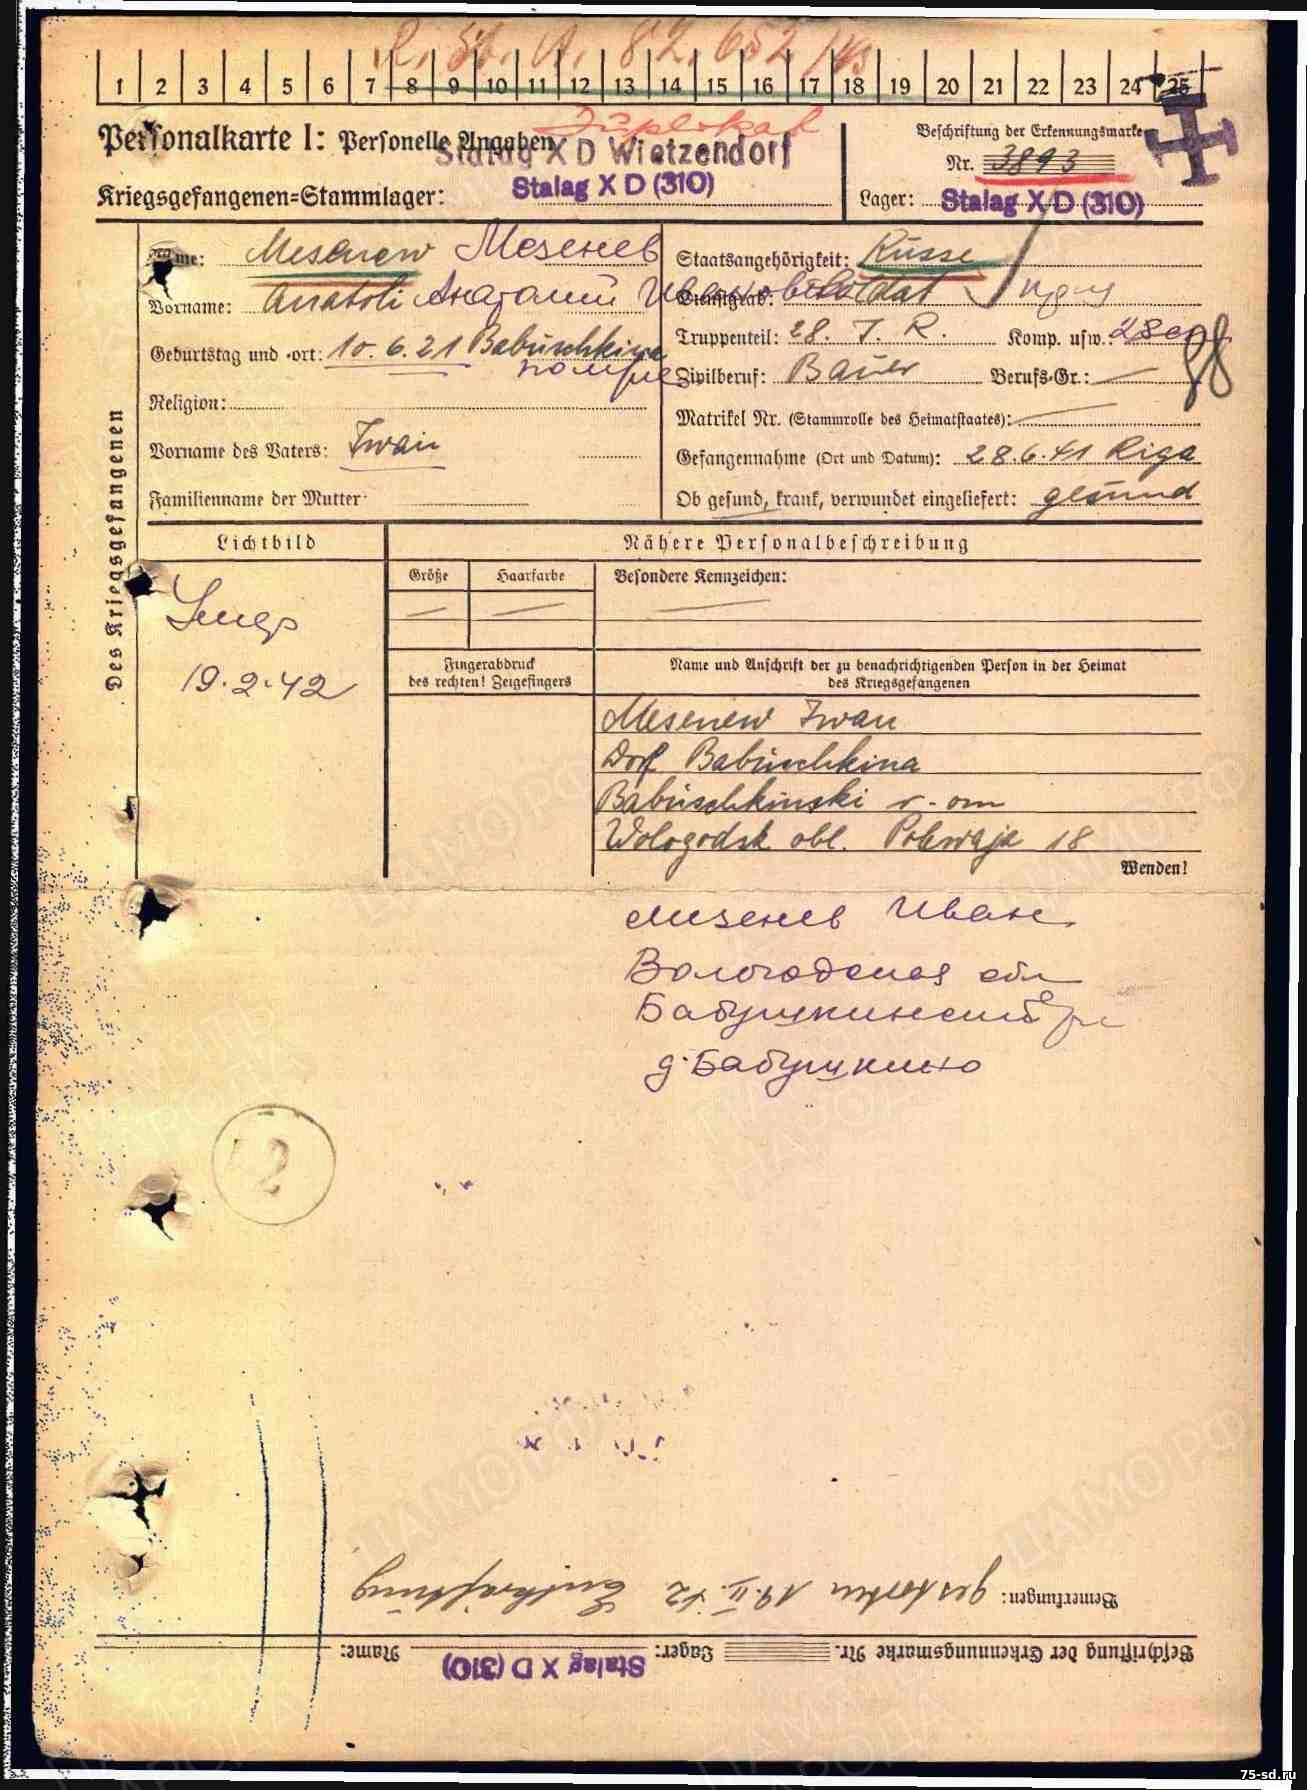 R. St. A. 82.652 /43
1 2 3 4 5 6 7 8 9 10 11 12 13 14 15 16 17 18 19 20 21 22 23 24 25
Duplikat
Personalkarte I: Personelle Angaben
Stalag X D Wietzendorf
Kriegsgefangenen=Stammlager: Stalag X D (310)
Beschriftung der Erkennungsmarke
Nr. 3893
Lager: Stalag X D (310)
Des Kriegsgefangenen
Name: Mesenew Мезенев
Vorname: Anatoli Анатолий Иванович
Geburtstag und -ort: 10.6.21 Babuschkina
Religion:
Vorname des Vaters: Iwan
Familienname der Mutter:
Staatsangehörigkeit: Russe
Dienstgrad: Soldat
Truppenteil: 28. J. R. Komp. usw.: 28
98
Zivilberuf: Bauer Berufs-Gr.: —
Matrikel Nr. (Stammrolle des Heimatstaates): —
Gefangennahme (Ort und Datum): 28.6.41 Riga
Ob gesund, krank, verwundet eingeliefert: gesund
Lichtbild
Nähere Personalbeschreibung
Größe Haarfarbe Besondere Kennzeichen:
— — —
19.2.42
Fingerabdruck
des rechten! Zeigefingers
Name und Anschrift der zu benachrichtigenden Person in der Heimat
des Kriegsgefangenen
Mesenew Iwan
Dorf Babuschkina
Babuschkinski r-on
Wologodsk obl. 18
Wenden!
Мезенев Иван
Вологодская обл
Бабушкинский
д. Бабушкино
2
Bemerkungen: gestorben 19.II.42 Entkräftung
Beschriftung der Erkennungsmarke Nr. Lager: Stalag X D (310) Name:
ЦАМО РФ
75-sd.ru